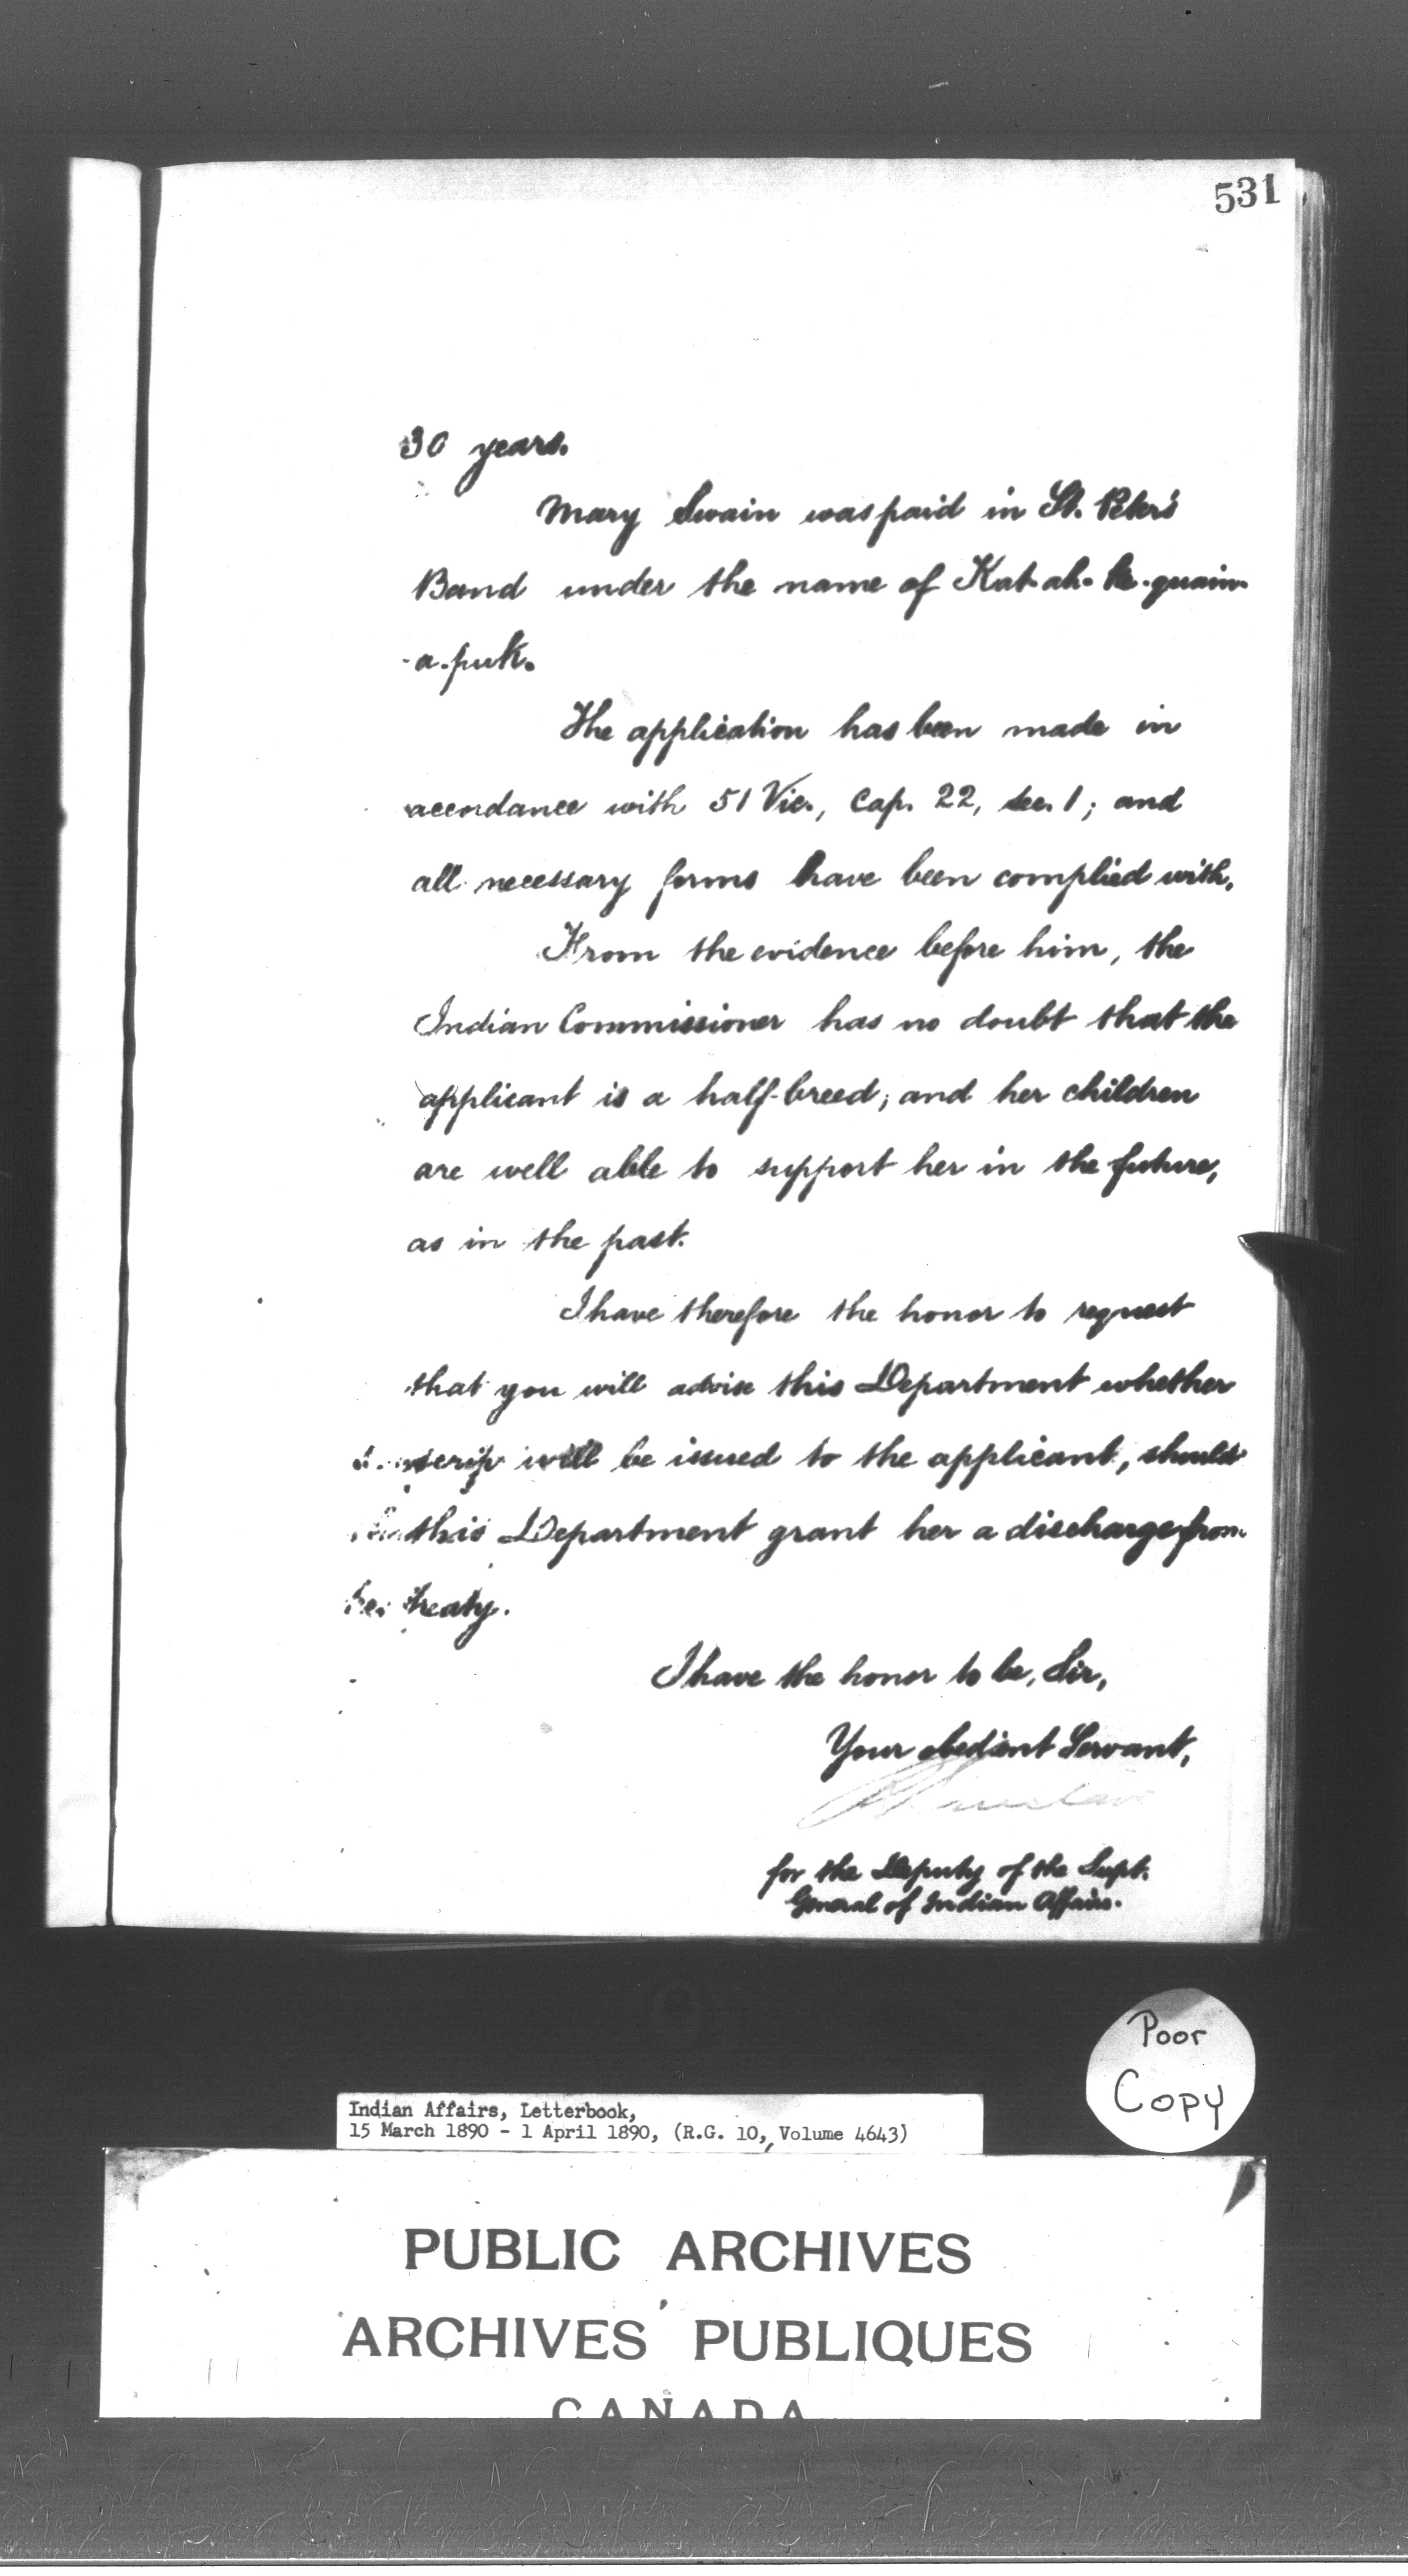 531
30 years.
Mary Swain was paid in St. Peter's
Band under the name of Kat-ah- -quain-
-a-puk.
The application has been made in
accordance with 51 Vic., Cap. 22, Sec. 1; and
all necessary forms have been complied with.
From the evidence before him, the
Indian Commissioner has no doubt that the
applicant is a half-breed; and her children
are well able to support her in the future,
as in the past.
I have therefore the honor to request
that you will advise this Department whether
scrip will be issued to the applicant, should
this Department grant her a discharge from
treaty.
I have the honor to be, Sir,
Your obedient Servant,
for the Deputy of the Supt.
General of Indian Affairs.
Poor
Copy
Indian Affairs, Letterbook,
15 March 1890 - 1 April 1890, (R.G. 10, Volume 4643)
PUBLIC ARCHIVES
ARCHIVES PUBLIQUES
CANADA